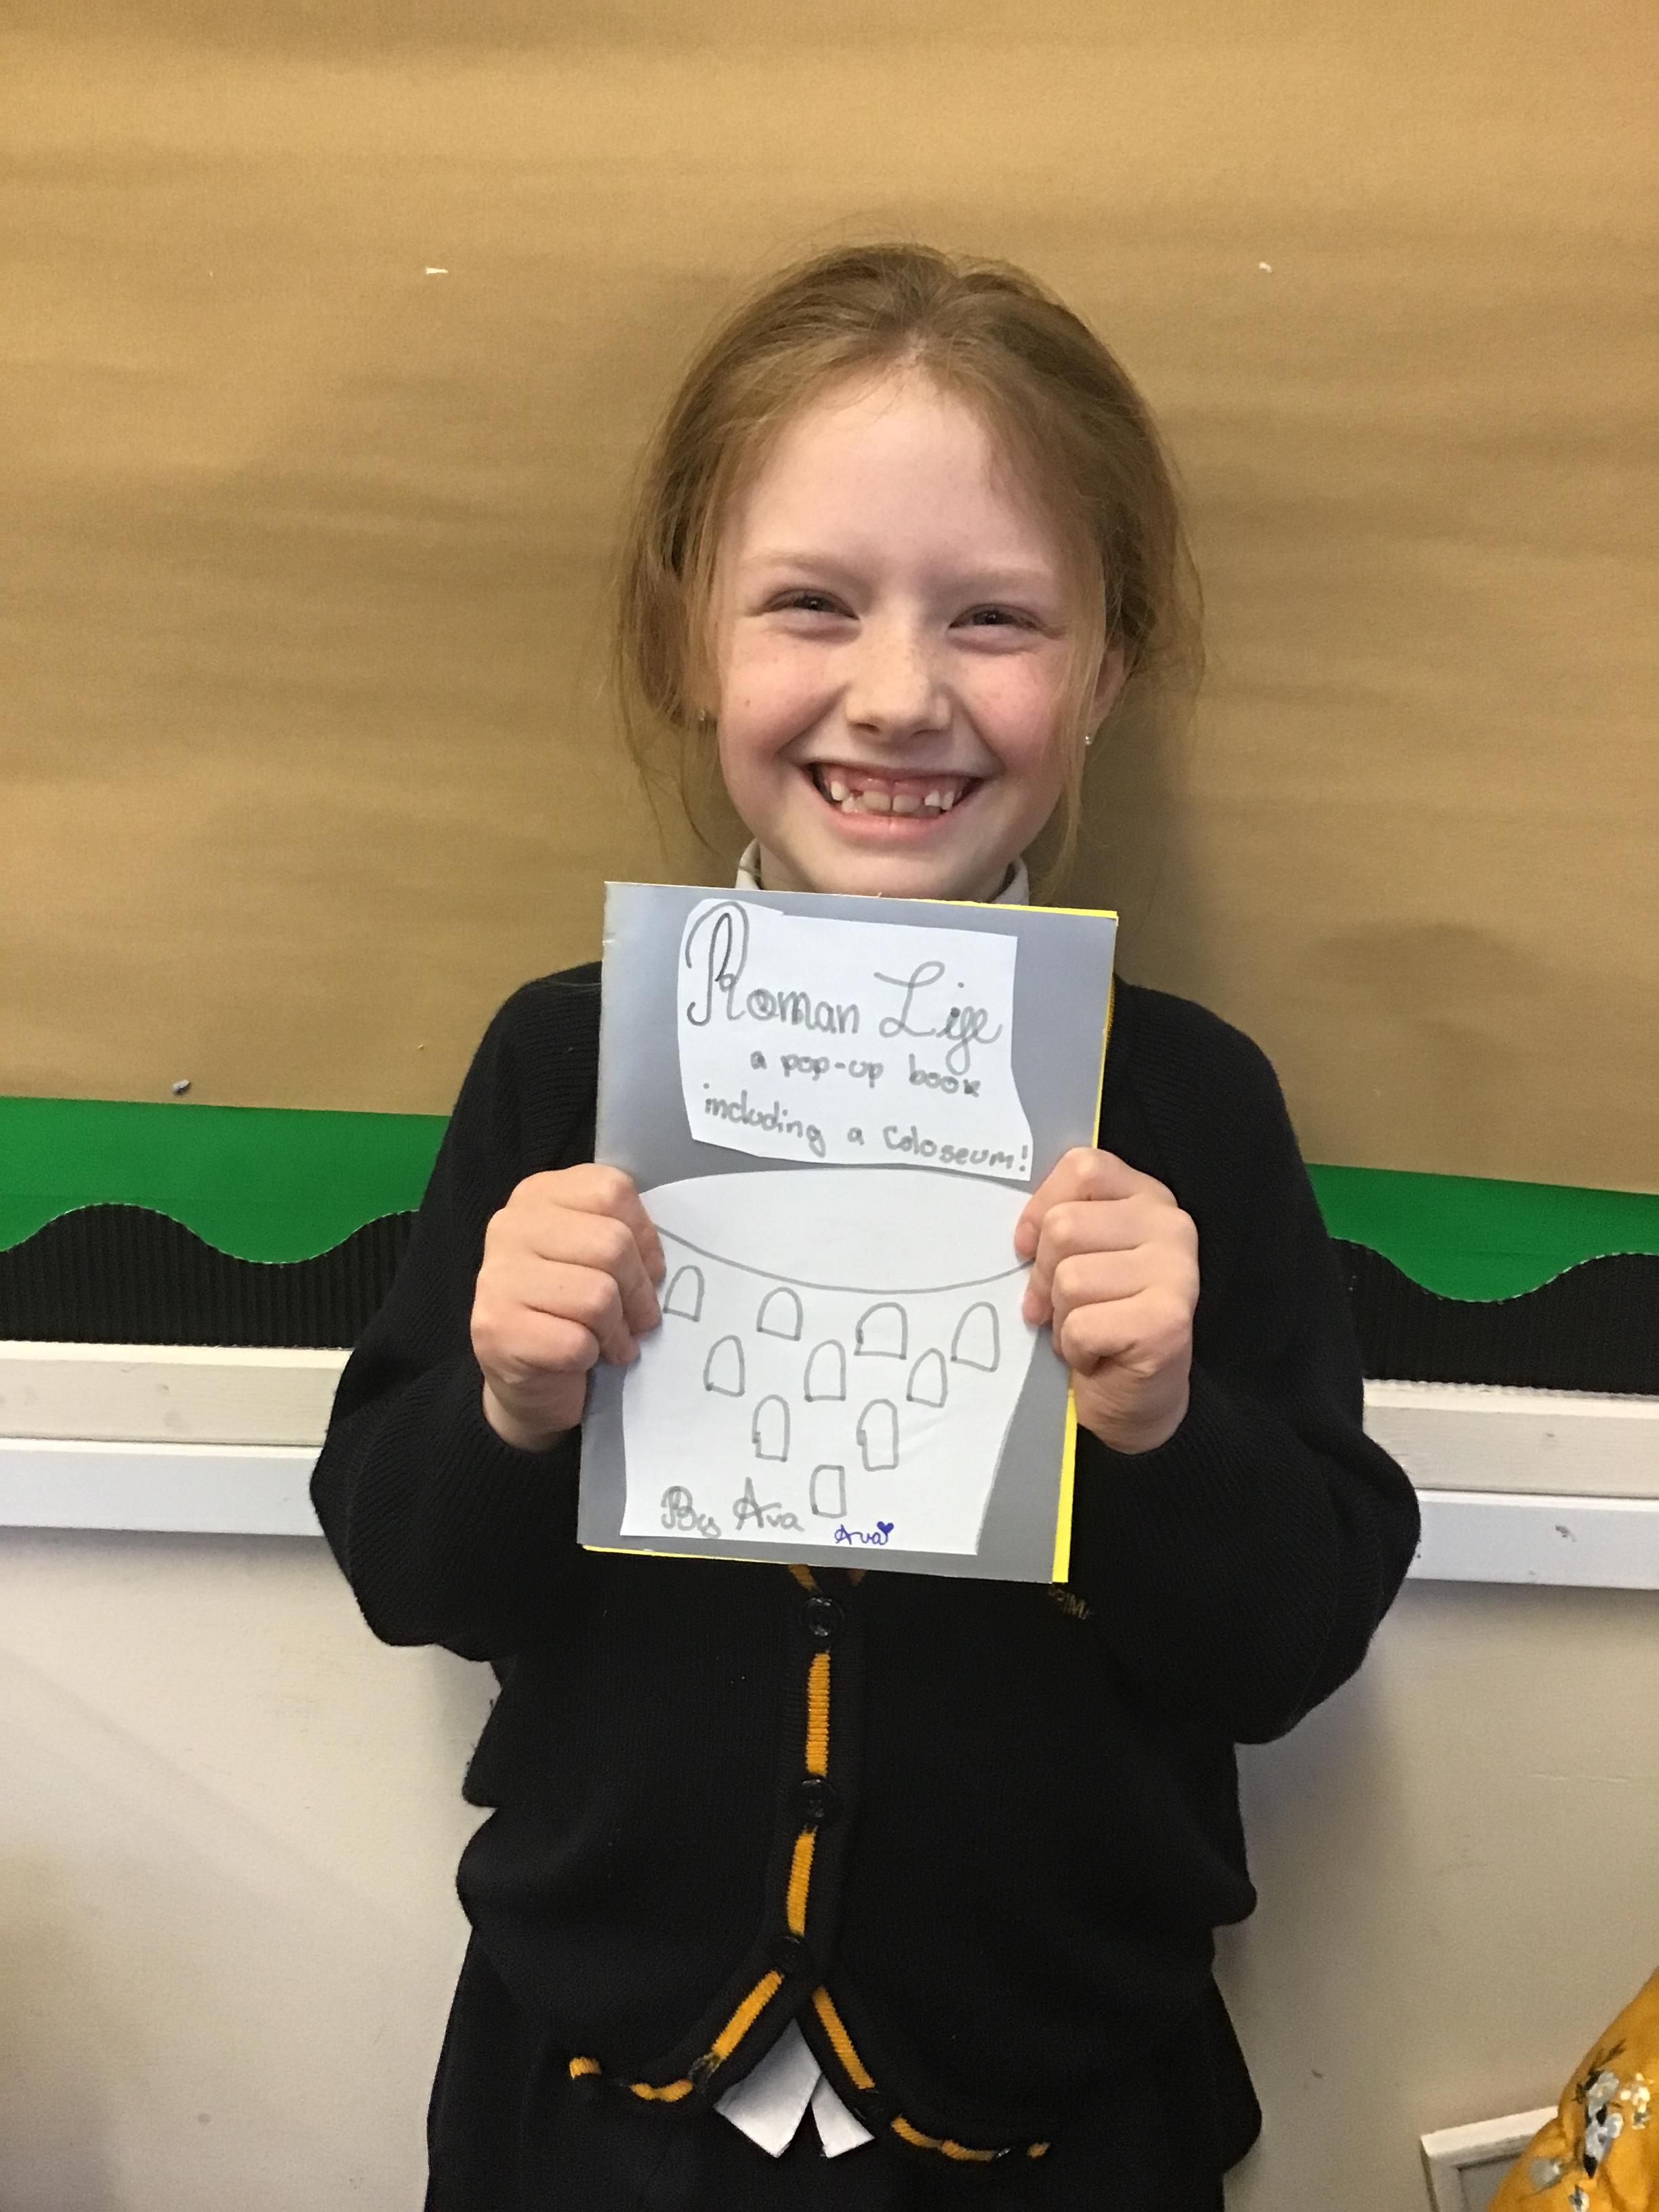 Roman Life
a pop-up book
including a Coloseum!
By Ava
Ava